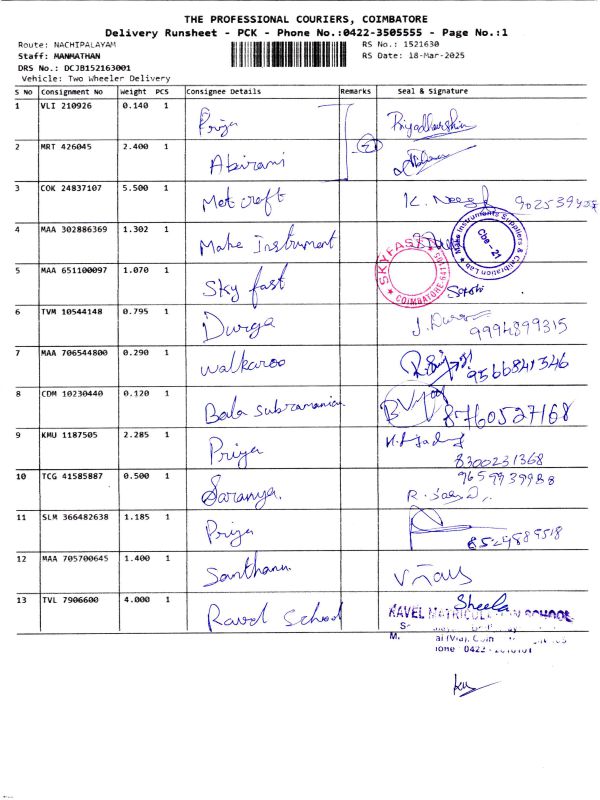 THE PROFESSIONAL COURIERS, COIMBATORE
Delivery Runsheet - PCK - Phone No.:0422-3505555 - Page No.:1
Route: NACHIPALAYAM RS No.: 1521630
Staff: MANMATHAN RS Date: 18-Mar-2025
DRS No.: DCJB152163001
Vehicle: Two Wheeler Delivery
S NO Consignment No Weight PCS Consignee Details Remarks Seal & Signature
1 VLI 210926 0.140 1 Priya Priyadharshin
2 MRT 426045 2.400 1 Abirami
3 COK 24837107 5.500 1 Met craft K.
4 MAA 302886369 1.302 1 Make Instrument
Make Instruments Suppliers & Calibration Lab Cbe - 21
5 MAA 651100097 1.070 1 Sky fast
SKYFAST COIMBATORE
6 TVM 10544148 0.795 1 Durga J. 9994899315
7 MAA 706544800 0.290 1 walkaroo 9566841546
8 CDM 10230440 0.120 1 Bala Subramanian 8760527168
9 KMU 1187505 2.285 1 Priya
8300231368
10 TCG 41585887 0.500 1 Saranya. 9659939988
11 SLM 366482638 1.185 1 Priya 8529889518
12 MAA 705700645 1.400 1 Santhanu
13 TVL 7906600 4.000 1 Ravel School Sheela
RAVEL SCHOOL